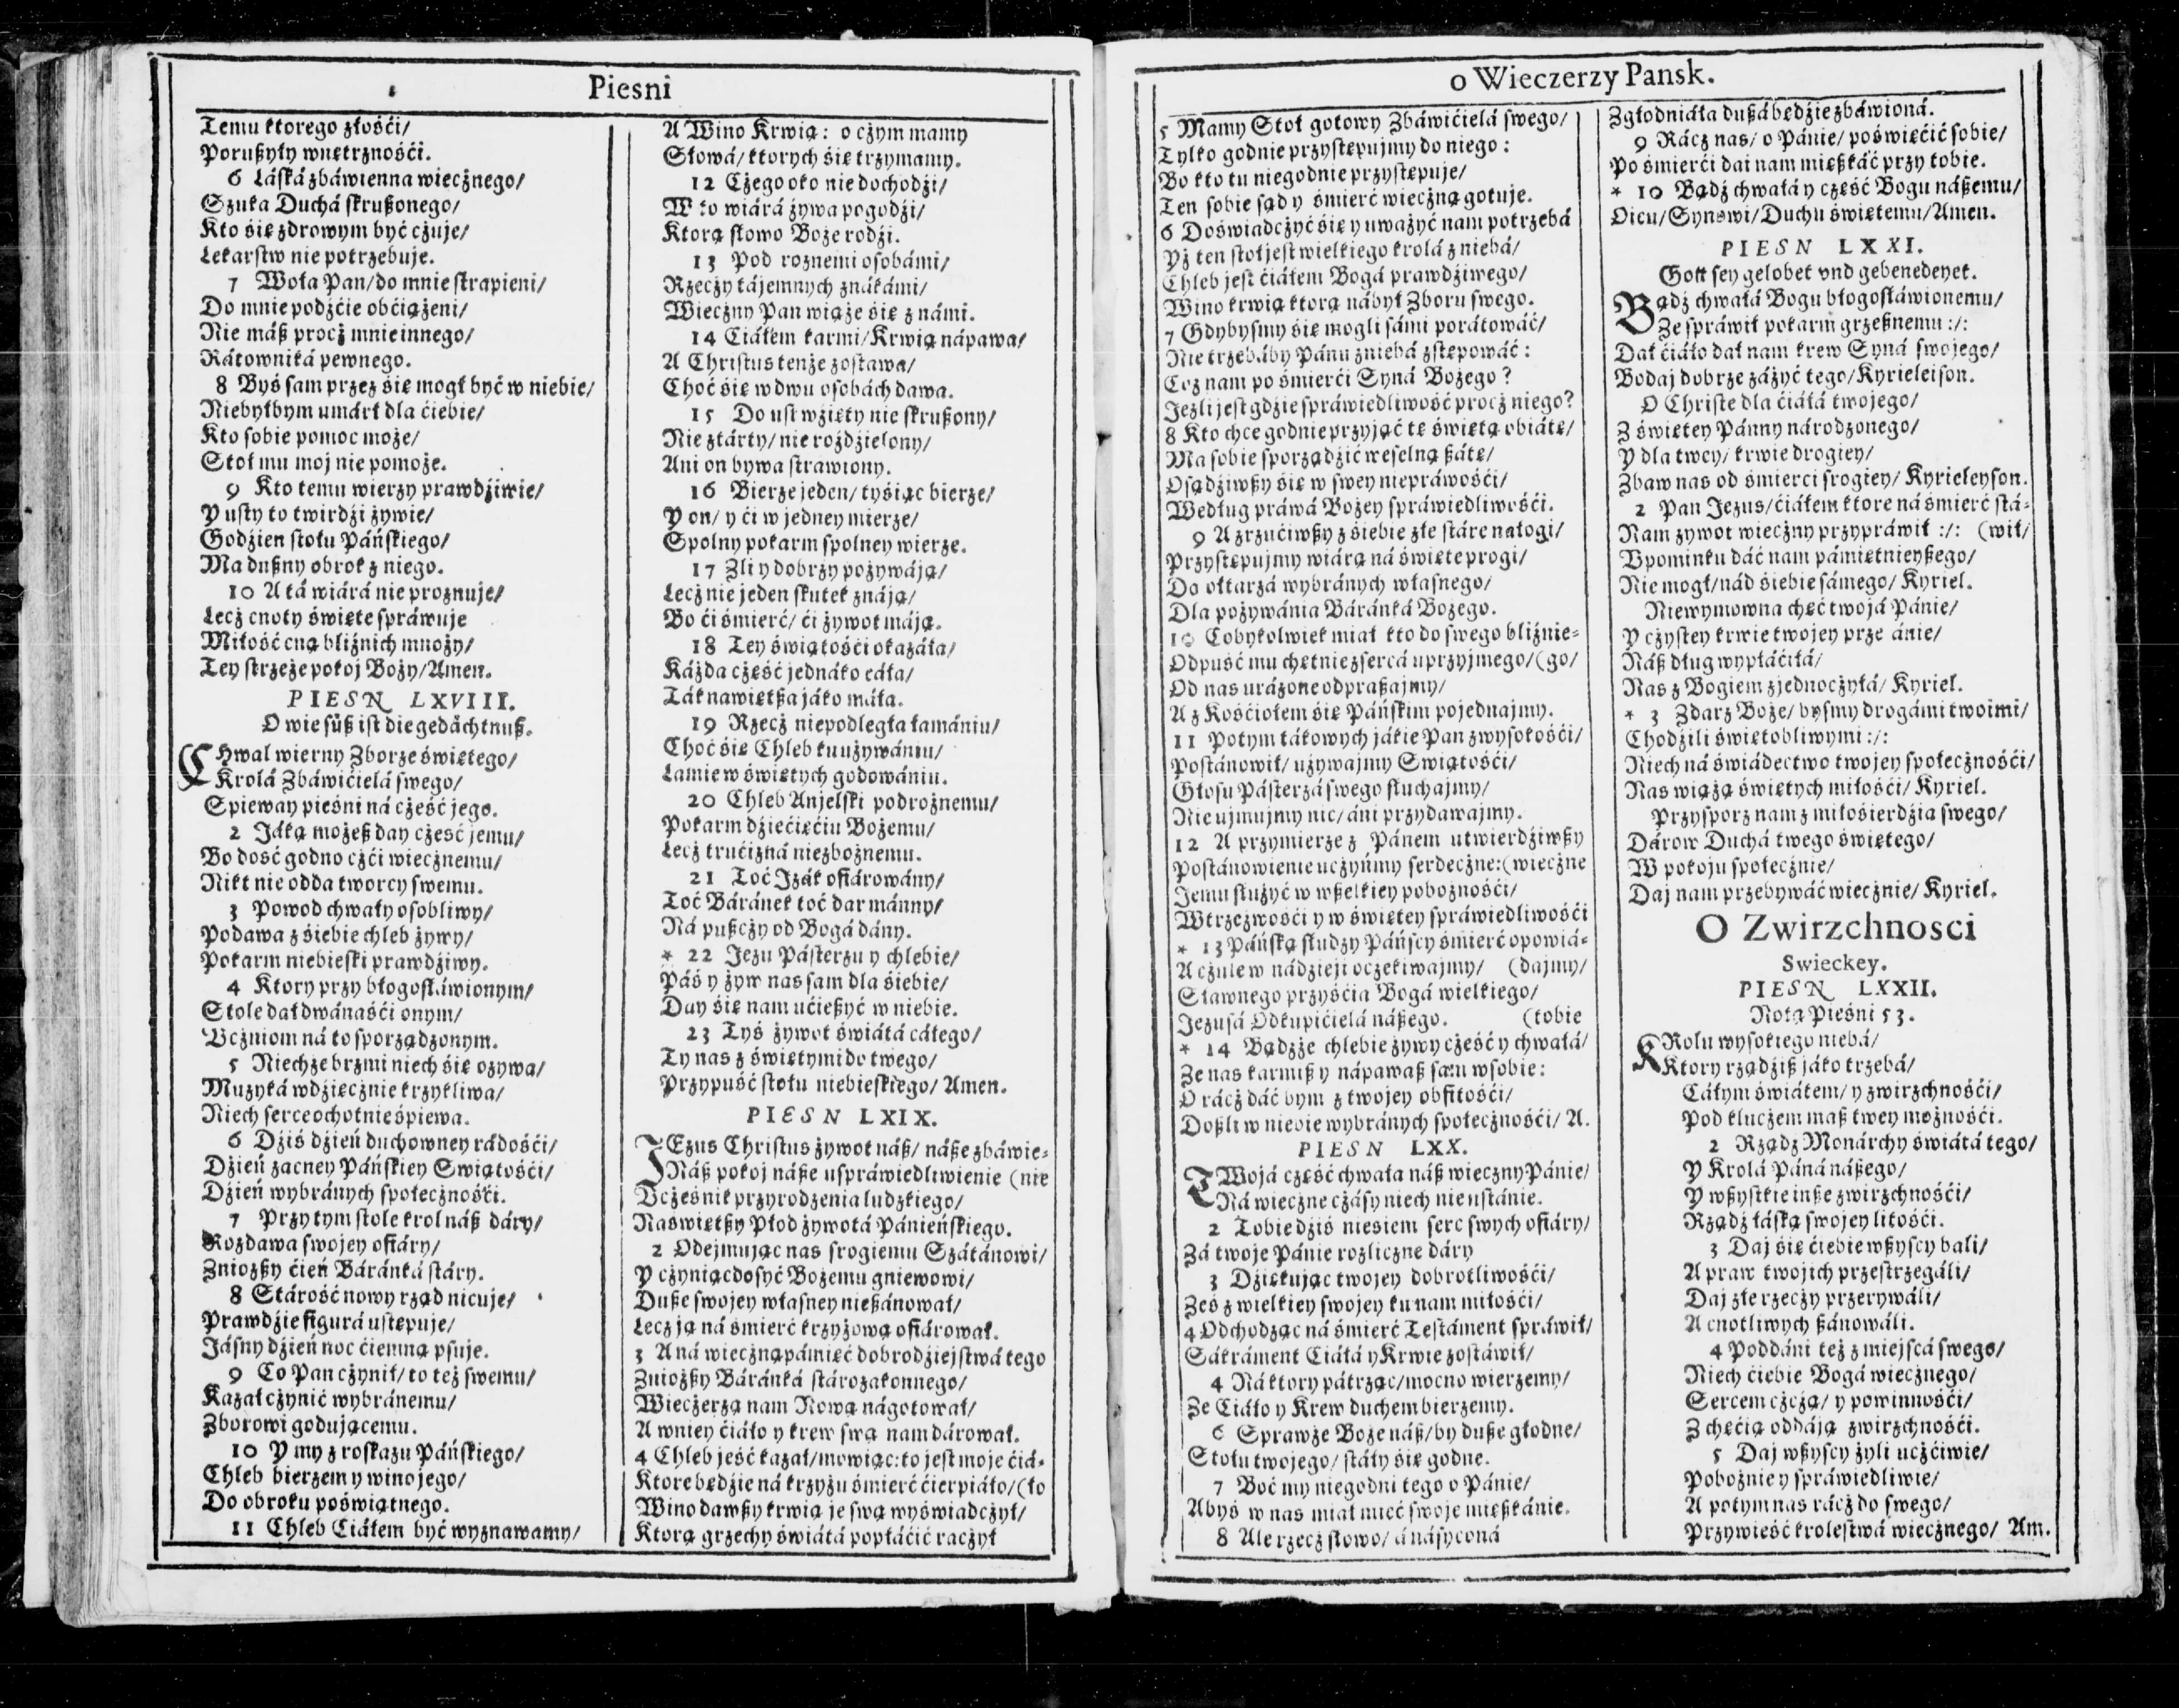 Piesni
Temu ktorego złośći/
Porußyły wnętrznośći.
6 Láská zbáwienna wiecżnego/
Szuka Duchá skrußonego/
Kto się zdrowym być cżuje/
Lekarstw nie potrzebuje.
7 Woła Pan/do mnie strapieni/
Do mnie podźćie obćiążeni/
Nie máß procż mnie innego/
Rátowniká pewnego.
8 Byś sam przez się mogł być w niebie/
Niebyłbym umárł dla ćiebie/
Kto sobie pomoc może/
Stoł mu moj nie pomoże.
9 Kto temu wierzy prawdźiwie/
Y usty to twirdźi żywie/
Godźien stołu Páńskiego/
Ma dußny obrok z niego.
10 A tá wiárá nie proznuje/
Lecż cnoty święte spráwuje
Miłość cną bliźnich mnoży/
Tey strzeże pokoj Boży/Amen.
PIESN LXVIII.
O wie süß ist die gedächtnuß.
CHwal wierny Zborze świętego/
Krolá Zbáwićielá swego/
Spieway pieśni ná cżeść jego.
2 Jáką możeß day cżesć jemu/
Bo dosć godno cżći wiecżnemu/
Nikt nie odda tworcy swemu.
3 Powod chwały osobliwy/
Podawa z śiebie chleb żywy/
Pokarm niebieski prawdźiwy.
4 Ktory przy błogosłáwionym/
Stole dał dwánaśći onym/
Vcżniom ná to sporządzonym.
5 Niechże brzmi niech śię ozywa/
Muzyká wdźięcżnie krzykliwa/
Niech serce ochotnie śpiewa.
6 Dźiś dźień duchowney rádośći/
Dźień zacney Páńskiey Swiątośći/
Dźień wybránych społecżnośći.
7 Przy tym stole krol náß dáry/
Rozdawa swojey ofiáry/
Zniozßy ćień Báránká stáry.
8 Stárość nowy rząd nicuje/
Prawdźie figurá ustępuje/
Jásny dźień noc ćiemną psuje.
9 Co Pan cżynił/to też swemu/
Kazał cżynić wybránemu/
Zborowi godującemu.
10 Y my z roskazu Páńskiego/
Chleb bierzem y wino jego/
Do obroku poświątnego.
11 Chleb Ciáłem być wyznawamy/
A Wino Krwią: o cżym mamy
Słowá/ktorych śię trzymamy.
12 Cżego oko nie dochodźi/
W to wiárá żywa pogodźi/
Ktorą słowo Boże rodźi.
13 Pod roznemi osobámi/
Rzecży tájemnych znákámi/
Wiecżny Pan wiąże śię z námi.
14 Ciáłem karmi/Krwią nápawa/
A Christus tenże zostawa/
Choć śię w dwu osobách dawa.
15 Do ust wźięty nie skrußony/
Nie stárty/nie rozdźielony/
Ani on bywa strawiony.
16 Bierze jeden/tyśiąc bierze/
Y on/y ći w jedney mierze/
Spolny pokarm spolney wierze.
17 Zli y dobrzy pożywáją/
Lecż nie jeden skutek znáją/
Bo ći śmierć/ći żywot máją.
18 Tey świątośći okazáła/
Káżda cżęść jednáko cáła/
Ták nawiętßa jáko máła.
19 Rzecż niepodległa łamániu/
Choć śię Chleb ku używániu/
Łamie w świętych godowániu.
20 Chleb Anjelski podrożnemu/
Pokarm dźiećięćiu Bożemu/
Lecż trućizná niezbożnemu.
21 Toć Jzák ofiárowány/
Toć Báránek toć dar mánny/
Ná pußcży od Bogá dány.
* 22 Jezu Pásterzu y chlebie/
Páś y żyw nas sam dla śiebie/
Day śię nam ućießyć w niebie.
23 Tyś żywot świátá cáłego/
Ty nas z świętymi do twego/
Przypuść stołu niebieskiego/Amen.
PIESN LXIX.
JEzus Christus żywot náß/náße zbáwie-
Náß pokoj náße uspráwiedliwienie (nie
Vcżeśnik przyrodzenia ludzkiego/
Naswiętßy Płod żywotá Pánieńskiego.
2 Odejmując nas srogiemu Szátánowi/
Y cżyniąc dosyć Bożemu gniewowi/
Duße swojey własney nießánował/
Lecz ją ná śmierć krzyżową ofiárował.
3 A ná wiecżną pámięć dobrodźiejstwá tego
Zniożßy Báránká stározakonnego/
Wiecżerzą nam Nową nágotował/
A w niey ćiáło y krew swą nam dárował.
4 Chleb jeść kazał/mowiąc:to jest moje ćiá-
Ktore będźie ná krzyżu śmierć ćierpiáło/(ło
Wino dawßy krwią je swą wyświadcżył/
Ktorą grzechy świátá popłáćić racżył
o Wieczerzy Pansk.
5 Mamy Stoł gotowy Zbáwićielá swego/
Tylko godnie przystępujmy do niego:
Bo kto tu niegodnie przystępuje/
Ten sobie sąd y śmierć wieczną gotuje.
6 Doświadcżyć śię y uważyć nam potrzebá
Yż ten stoł jest wielkiego krolá z niebá/
Chleb jest ćiáłem Bogá prawdźiwego/
Wino krwią ktorą nábył Zboru swego.
7 Gdybysmy śię mogli sámi porátowáć/
Nie trzebáby Pánu z niebá zstępowáć:
Coz nam po śmierći Syná Bożego?
Jeźli jest gdźie spráwiedliwość procż niego?
8 Kto chce godnie przyjąć tę świętą obiátę/
Ma sobie sporządźić weselną ßátę/
Osądźiwßy śię w swey niepráwośći/
Według práwá Bożey spráwiedliwośći.
9 A zrzućiwßy z śiebie złe stáre nałogi/
Przystępujmy wiárą ná święte progi/
Do ołtarzá wybránych własnego/
Dla pożywánia Báránká Bożego.
10 Cobykolwiek miał kto do swego bliźnie-
Odpuść mu chętnie z sercá uprzyjmego/(go/
Od nas urázone odpraßajmy/
A z Kośćiołem śię Páńskim pojednajmy.
11 Potym tákowych jákie Pan z wysokośći/
Postánowił/używajmy Swiątośći/
Głosu Pásterzá swego słuchajmy/
Nie ujmujmy nic/áni przydawajmy.
12 A przymierze z Pánem utwierdźiwßy
Postánowienie ucżyńmy serdecżne:(wiecżne
Jemu służyć w wßelkiey pobożnośći/
W trzezwośći y w świętey spráwiedliwośći
* 13 Páńską słudzy Páńscy śmierć opowiá-
A cżule w nádźieji ocżekiwajmy/ (dajmy/
Sławnego przyśćia Bogá wielkiego/
Jezusá Odkupićielá náßego. (tobie
* 14 Bądźże chlebie żywy cżeść y chwałá/
Ze nas karmiß y nápawaß sam w sobie:
O rácż dáć bym z twojey obfitośći/
Doßli w niebie wybránych społecżnośći/A.
PIESN LXX.
TWojá cżęść chwała náß wieczny Pánie/
Ná wieczne cżásy niech nie ustánie.
2 Tobie dźiś niesiem serc swych ofiáry/
Zá twoje Pánie rozliczne dáry
3 Dźiękując twojey dobrotliwośći/
Żeś z wielkiey swojey ku nam miłośći/
4 Odchodząc ná śmierć Testáment spráwił/
Sákráment Ciáłá y Krwie zostáwił/
4 Ná ktory pátrząc/mocno wierzemy/
Ze Ciáło y Krew duchem bierzemy.
6 Sprawże Boże náß/by duße głodne/
Stołu twojego/stáły się godne.
7 Boć my niegodni tego o Pánie/
Abyś w nas miał mieć swoje mießkánie.
8 Ale rzecż słowo/á násycona
Zgłodniáła dußá będźie zbáwioná.
9 Rácż nas/o Pánie/poświęćić sobie/
Po śmierći dai nam mießkáć przy tobie.
* 10 Bądź chwałá y cżeść Bogu náßemu/
Oicu/Synowi/Duchu świętemu/Amen.
PIESN LXXI.
Gott sey gelobet vnd gebenedeyet.
BĄdź chwałá Bogu błogosłáwionemu/
Ze spráwił pokarm grzeßnemu :/:
Dał ćiáło dał nam krew Syná swojego/
Bodaj dobrze záżyć tego/Kyrieleison.
O Christe dla ćiáłá twojego/
Z świętey Pánny národzonego/
Y dla twey/krwie drogiey/
Zbaw nas od śmierci srogiey/Kyrieleyson.
2 Pan Jezus/ćiáłem ktore ná śmierć stá-
Nam żywot wiecżny przypráwił :/: (wił/
Vpominku dáć nam pámiętnieyßego/
Nie mogł/nád śiebie sámego/Kyriel.
Niewymowna chęć twojá Pánie/
Y cżystey krwie twojey prze ánie/
Náß dług wypłáćiłá/
Nas z Bogiem zjednocżyłá/Kyriel.
* 3 Zdarz Boże/bysmy drogámi twoimi/
Chodźili świętobliwymi :/:
Niech ná świádectwo twojey społecżnośći/
Nas wiążą świętych miłośći/Kyriel.
Przysporz nam z miłośierdźia swego/
Dárow Duchá twego świętego/
W pokoju społecżnie/
Daj nam przebywáć wiecżnie/Kyriel.
O Zwirzchnosci
Swieckey.
PIESN LXXII.
Notą Pieśni 53.
KRolu wysokiego niebá/
Ktory rządźiß jáko trzebá/
Cáłym świátem/y zwirzchnośći/
Pod kluczem maß twey możnośći.
2 Rządź Monárchy świátá tego/
Y Krolá Páná náßego/
Y wßystkie inße zwirzchnośći/
Rządź łáską swojey litośći.
3 Daj śię ćiebie wßyscy bali/
A praw twojich przestrzegáli/
Daj złe rzecży przerywáli/
A cnotliwych ßánowáli.
4 Poddáni też z miejscá swego/
Niech ćiebie Bogá wiecżnego/
Sercem cżcżą/y powinnośći/
Z chęćią oddáją zwirzchnośći.
5 Daj wßyscy żyli ucżćiwie/
Pobożnie y spráwiedliwie/
A potym nas rácż do swego/
Przywieść krolestwá wiecżnego/Am.